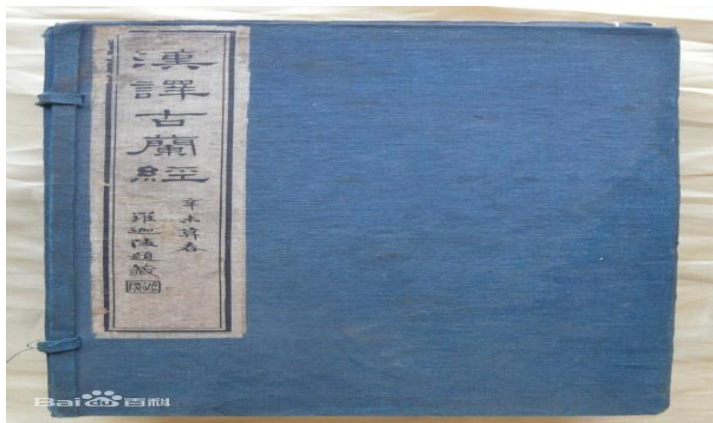 漢譯古蘭經
辛未莫春
羅迦陵題籤
Bai百科